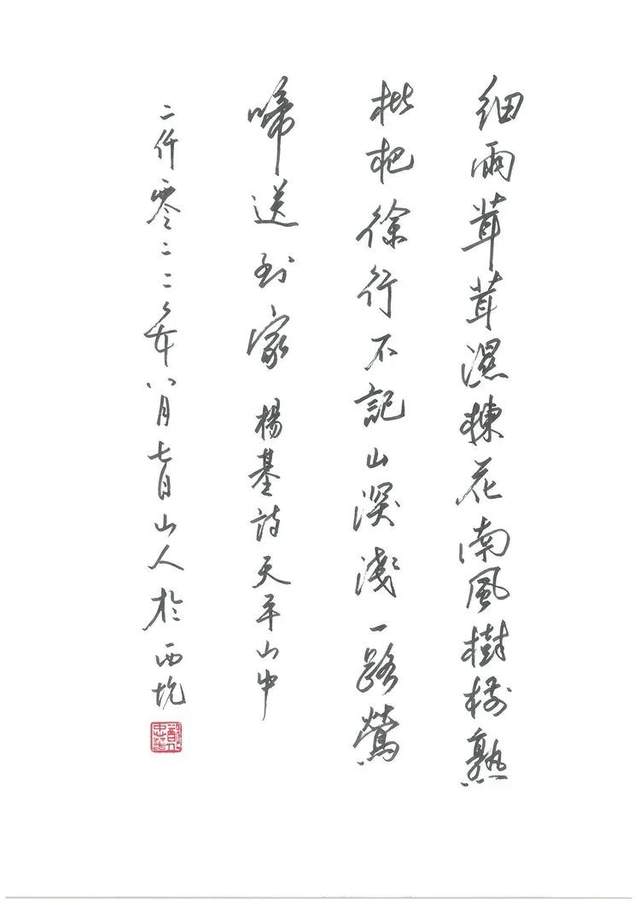 細雨茸茸濕楝花南風樹樹熟
枇杷徐行不記山深淺一路鶯
啼送到家 楊基詩天平山中
二仟零二二年八月七日山人於西坑